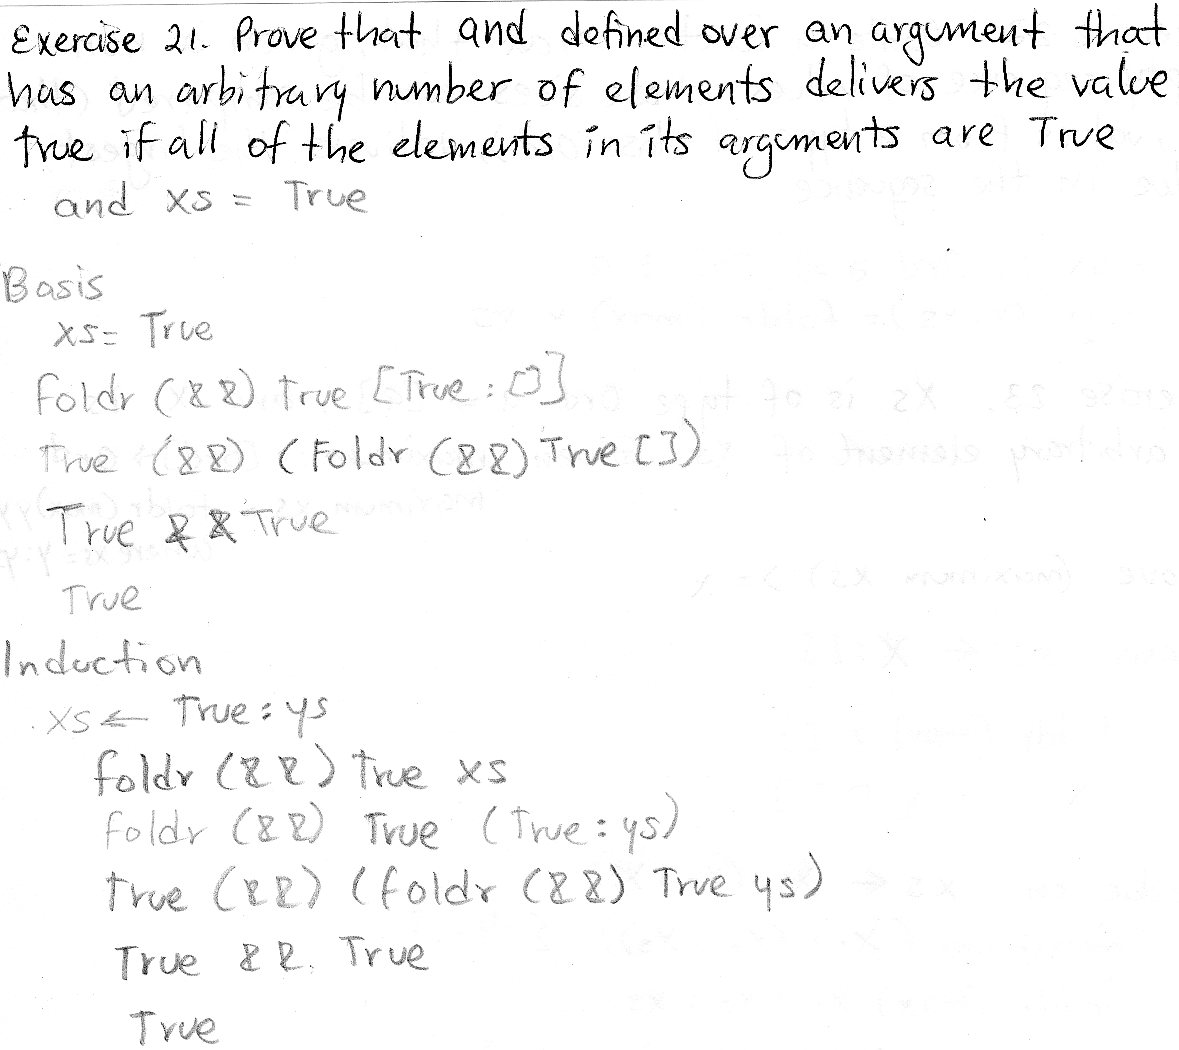 Exercise 21. Prove that and defined over an argument that
has an arbitrary number of elements delivers the value
true if all of the elements in its arguments are True
and xs = True
Basis
xs= True
foldr (&&) true [True : []]
True (&&) (Foldr (&&) True [])
True && True
True
Induction
xs ← True : ys
foldr (&&) true xs
foldr (&&) True (True : ys)
true (&&) (foldr (&&) True ys)
True &&. True
True